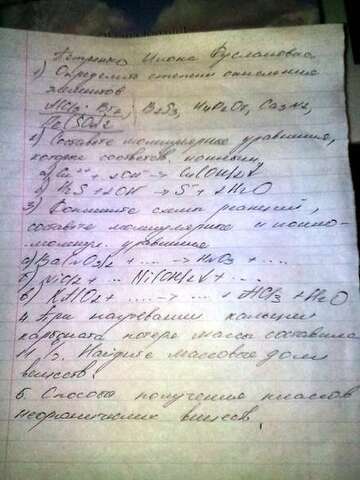 Петренко Илона Руслановна
1) Определить степени окисления
элементов
AlCl3, B2S3, H4P2O7, Ca3N2,
2) Составьте молекулярные уравнения,
которые соответств. ионным,
а) + 2OH⁻ → Cu(OH)2↓
б) H2S + 2OH⁻ → S²⁻ + 2H2O
3) Допишите схемы реакций,
составьте молекулярные и ионно-
молекул. уравнения
а) Ba(NO3)2 + .... → HNO3 + ....
б) NiCl2 + ... Ni(OH)2↓ + ....
в) KAlO2 + ....→ ... + AlCl3 + H2O
4. При нагревании кальция
карбоната потеря массы составила
Найдите массовые доли
веществ.
5. Способы получения классов
неорганических веществ.